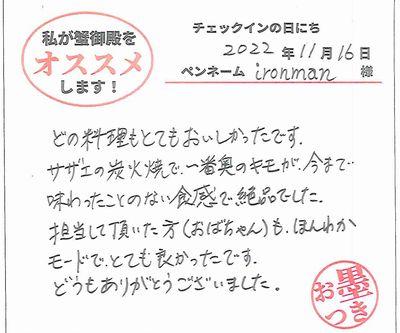 私が蟹御殿を
オススメ
します！
チェックインの日にち
2022年11月16日
ペンネーム ironman 様
どの料理もとてもおいしかったです。
サザエの炭火焼で、一番奥のキモが、今まで
味わったことのない食感で絶品でした。
担当して頂いた方(おばちゃん)も、ほんわか
モードで、とても良かったです。
どうもありがとうございました。
お墨つき